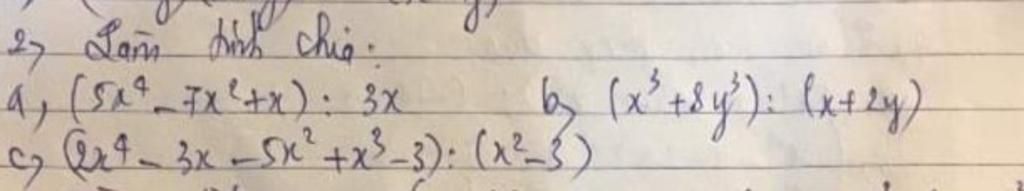 2, Làm tính chia:
a, (5x⁴ - 7x² + x) : 3x b, (x³ + 8y³) : (x + 2y)
c, (2x⁴ - 3x - 5x² + x³ - 3) : (x² - 3)